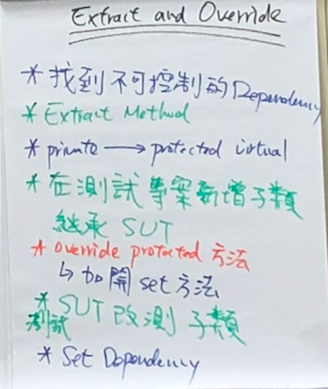 Extract and Override
* 找到不可控制的Dependency
* Extract Method
* private → protected virtual
* 在測試專案新增子類
繼承 SUT
* override protected 方法
↳ 加開 set 方法
* SUT 改測 子類
測試
* Set Dependency